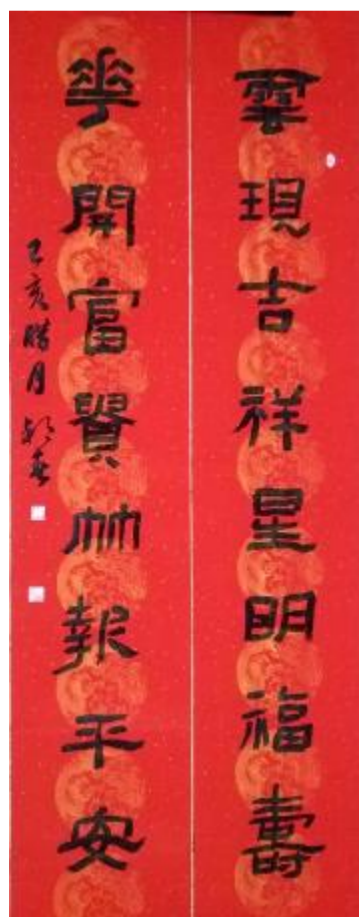 雲現吉祥星明福壽
華開富貴竹報平安
己亥腊月